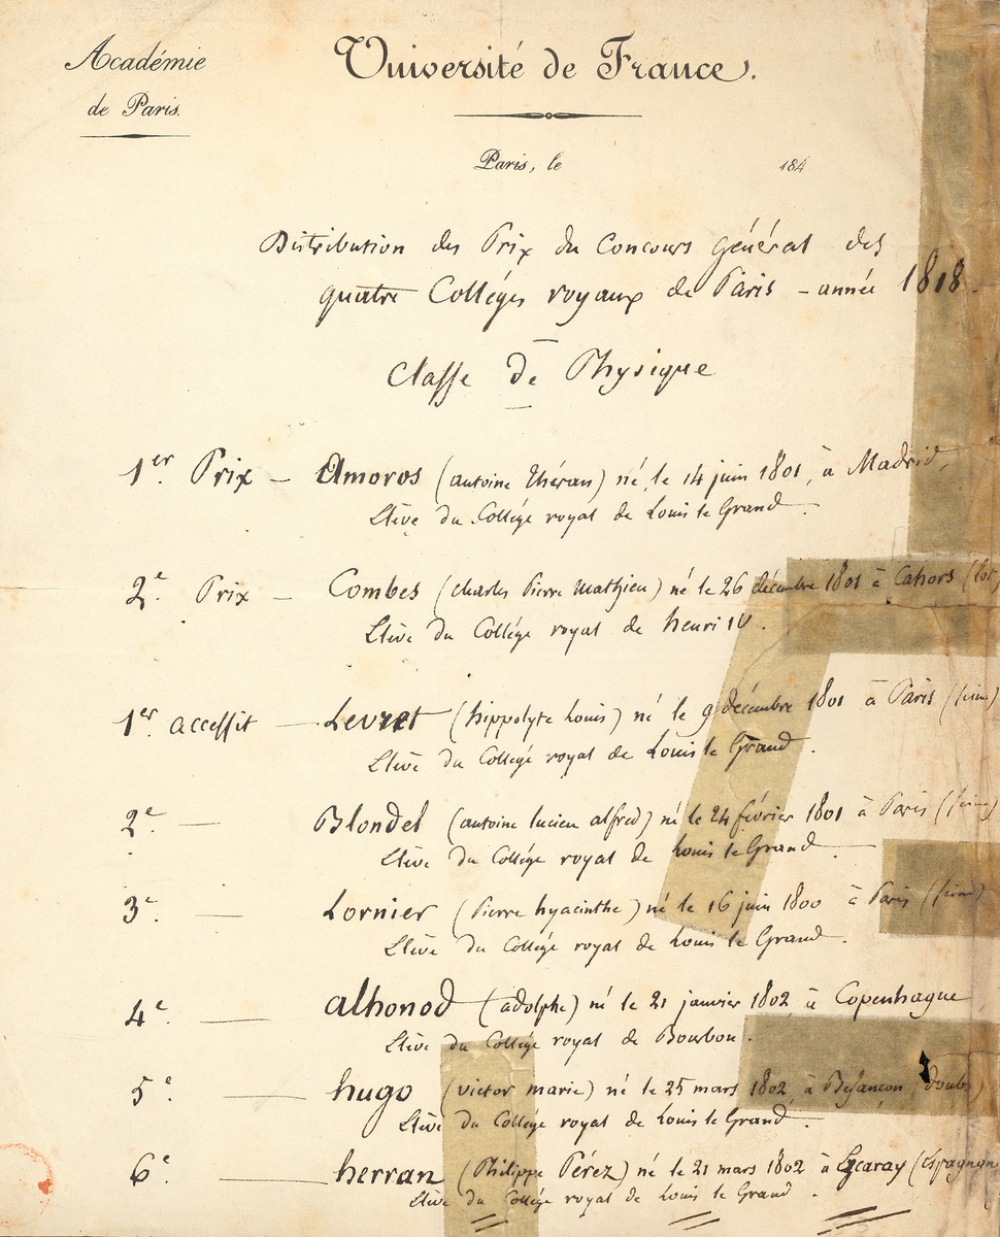 Académie
de Paris.
Université de France.
Paris, le 184
Distribution des Prix du Concours général des
quatre Collèges royaux de Paris - année 1818.
Classe de Physique
1er. Prix - Amoros (antoine Théran) né le 14 juin 1801, à Madrid,
Elève du Collége royal de Louis le Grand.
2e. Prix - Combes (charles Pierre Mathieu) né le 26 décembre 1801 à Cahors (lot)
Elève du Collége royal de henri IV.
1er. accessit - Levret (hippolyte Louis) né le 9 décembre 1801 à Paris (seine)
Elève du Collége royal de Louis le Grand.
2e. - Blondel (antoine lucien alfred) né le 24 février 1801 à Paris (seine)
Elève du Collége royal de Louis le Grand.
3e. - Lornier (Pierre hyacinthe) né le 16 juin 1800 à Paris (seine)
Elève du Collége royal de Louis le Grand.
4e. - alhonod (adolphe) né le 21 janvier 1802 à Copenhague
Elève du Collége royal de Bourbon.
5e. - hugo (victor marie) né le 25 mars 1802 à Besançon, doubs)
Elève du Collége royal de Louis le Grand.
6e. - herran (Philippe Pérez) né le 21 mars 1802 à Ezcaray (Espagne
Elève du Collége royal de Louis le Grand.